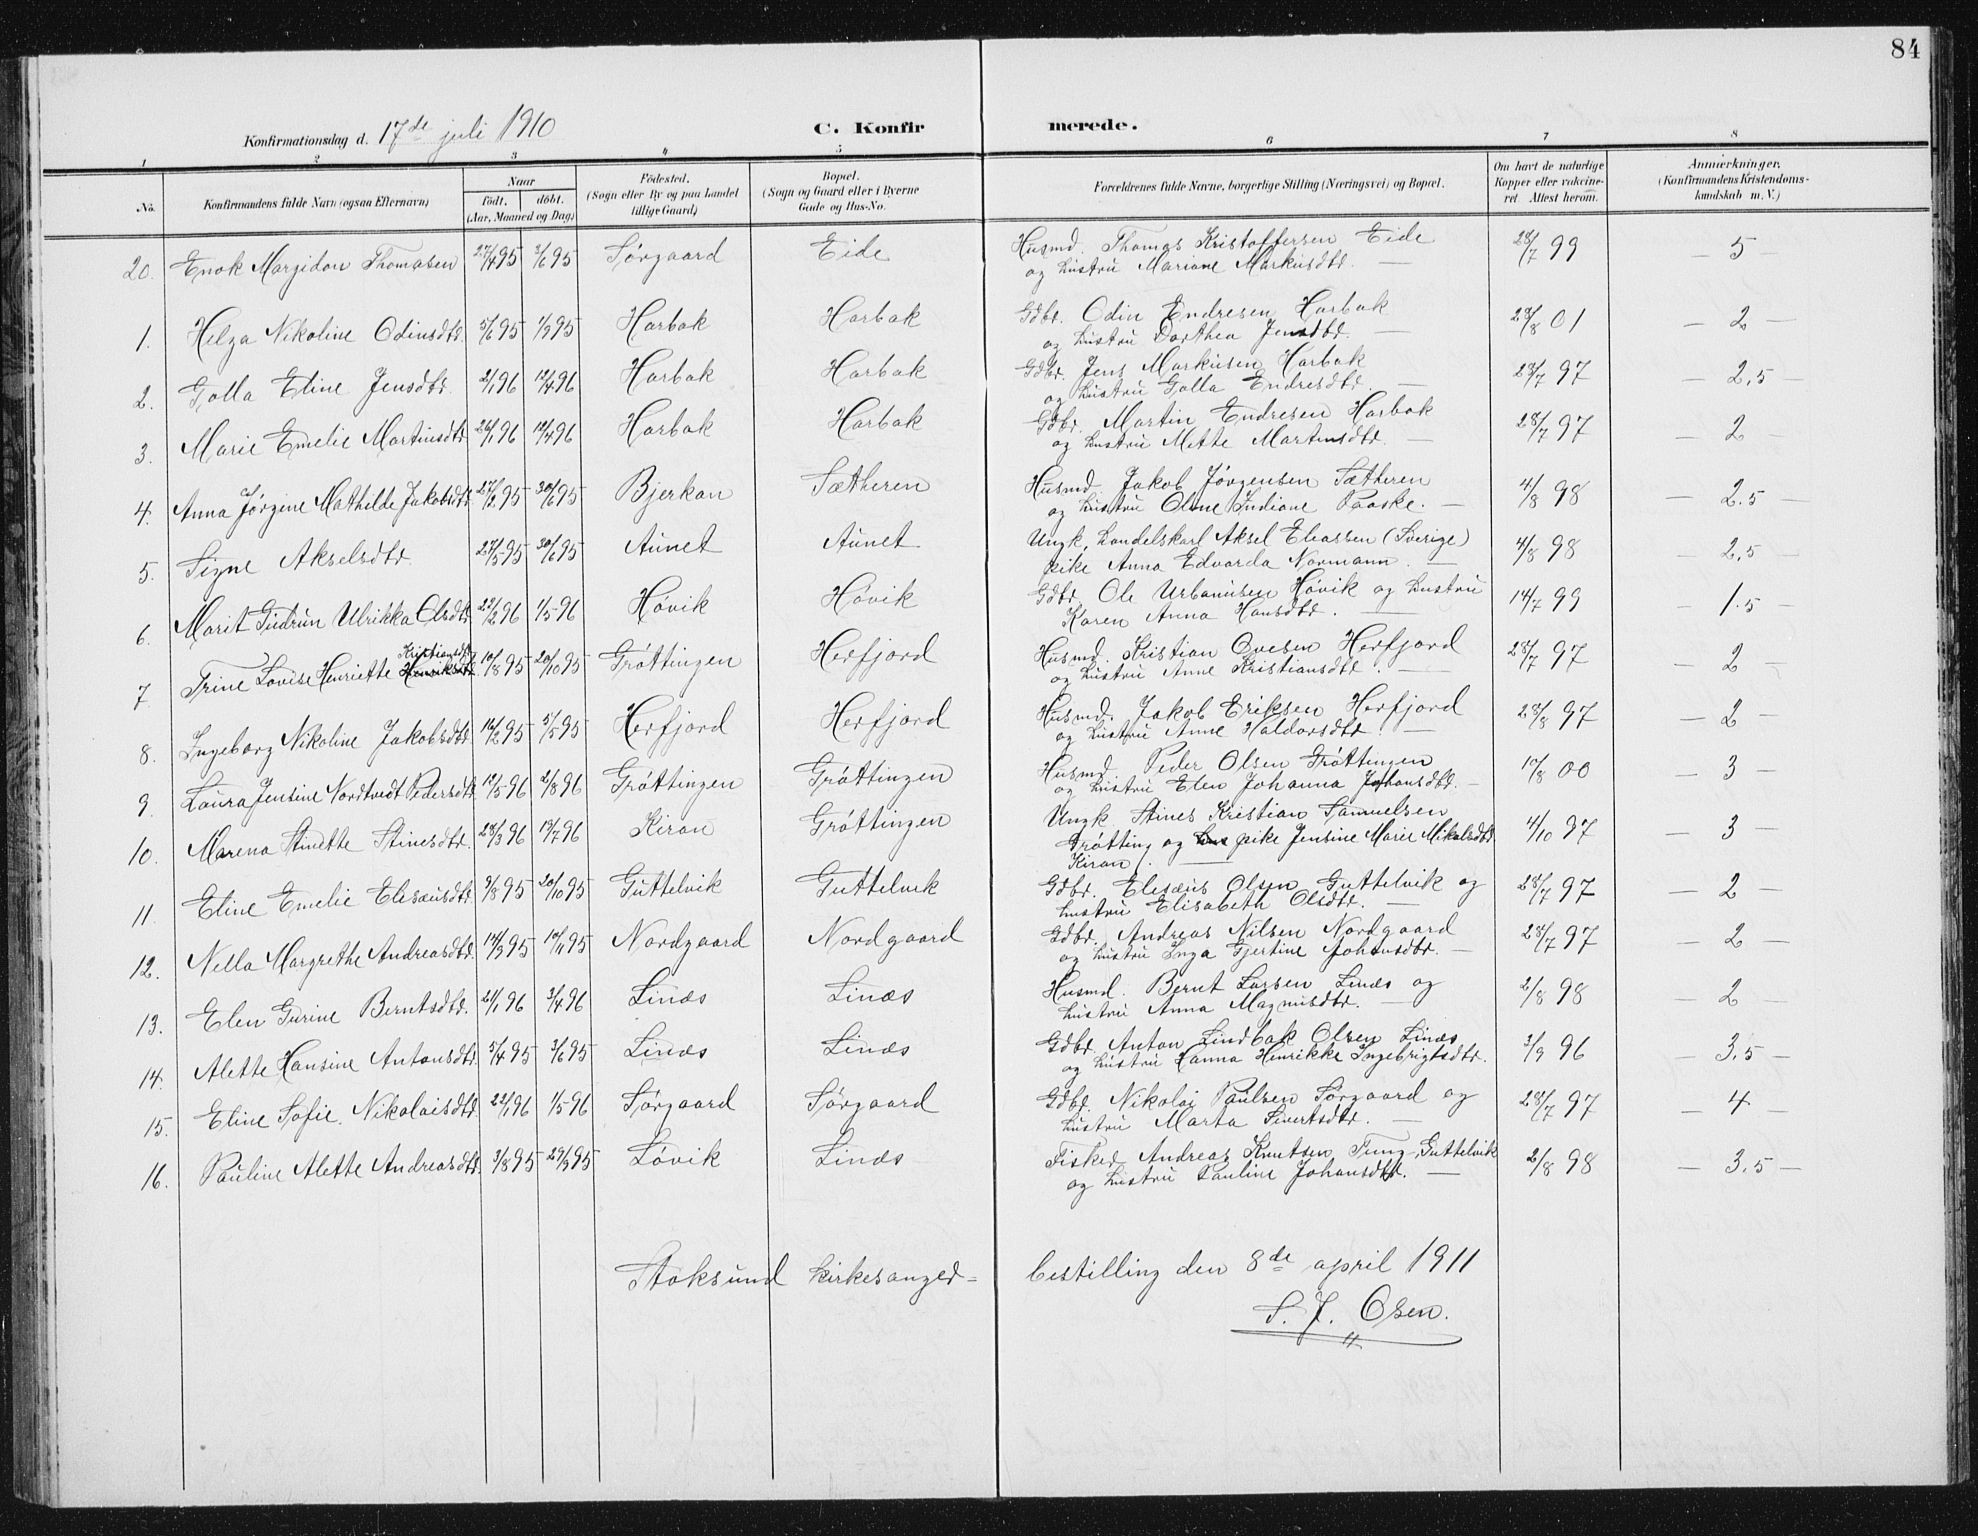 84
Konfirmationsdag d. 17de juli 1910 C. Konfir merede.
1 2 3 4 5 6 7 8
No. Konfirmandens fulde Navn (ogsaa Efternavn) Naar födt. döbt. (Aar, Maaned og Dag) Födested. (Sogn eller By og paa Landet tillige Gaard) Bopæl. (Sogn og Gaard eller i Byerne Gade og Hus-No. Forældrenes fulde Navne, borgerlige Stilling (Næringsvei) og Bopæl. Om havt de naturlige Kopper eller vakcineret. Attest herom. Anmærkninger. (Konfirmandens Kristendomskundskab m. V.)
20. Enok Margidon Thomasen 27/4 95 3/6 95 Sørgaard Eide Husmd. Thomas Kristoffersen Eide 28/7 99 – 5 –
og hustru Mariane Markusdtr. —
1. Helga Nikoline Odinsdtr. 5/6 95 1/9 95 Harbak Harbak Gdbr. Odin Endresen Harbak 28/8 01 – 2 –
og hustru Dorthea Jensdtr. —
2. Golla Eline Jensdtr. 2/1 96 12/4 96 Harbak Harbak Gdbr. Jens Markusen Harbak 28/7 97 – 2,5 –
og hustru Golla Endresdtr. —
3. Marie Emelie Martinsdtr. 26/1 96 12/4 96 Harbak Harbak Gdbr. Martin Endresen Harbak 28/7 97 – 2
og hustru Mette Martinsdtr. —
4. Anna Jørgine Mathilde Jakobsdtr. 27/2 95 30/6 95 Bjerkan Sætheren Husmd. Jakob Jørgensen Sætheren 4/8 98 – 2.5 –
og hustru Oline Indiane Paaske. —
5. Signe Akselsdtr. 27/5 95 30/6 95 Aunet Aunet Ungk. handelskarl Aksel Eliassen (Sverige) 4/8 98 – 2,5 –
pike Anna Edvarda Normann. —
6. Marit Gudrun Ulrikka Olsdtr. 22/2 96 1/5 96 Høvik Høvik Gdbr. Ole Urbanusen Høvik og hustru 14/7 99 – 1.5 –
Karen Anna Hansdtr. —
7 Trine Lovise Henriette Kristiansdtr. 10/8 95 20/10 95 Grøttingen Herfjord Husmd. Kristian Ovesen Herfjord 28/7 97 – 2 –
og hustru Anne Kristiansdtr. —
8. Ingeborg Nikoline Jakobsdtr. 16/2 95 5/5 95 Herfjord Herfjord Husmd. Jakob Eriksen Herfjord 28/8 97 – 2 –
og hustru Anne Haldorsdtr. —
9 Laura Jensine Nordtvedt Pedersdtr. 12/5 96 2/8 96 Grøttingen Grøttingen Husmd. Peder Olsen Grøttingen 10/8 00 – 3 –
og hustru Elen Johanna Johansdtr. —
10. Marena Stinette Stinesdtr. 28/3 96 19/7 96 Kiran Grøttingen Ungk. Stines Kristian Samuelsen 4/10 97 – 3 –
Grøtting og pike Jensine Marie Mikalsdtr.
Kiran. —
11. Eline Emelie Elisæusdtr. 9/8 95 20/10 95 Guttelvik Guttelvik Gdbr. Elisæus Olsen Guttelvik og 28/7 97 – 2 –
hustru Elisabeth Olsdtr. —
12. Nella Margrethe Andreasdtr. 14/9 95 10/11 95 Nordgaard Nordgaard Gdbr. Andreas Nilsen Nordgaard 28/7 97 – 2 –
og hustru Inga Gjertine Johansdtr. —
13. Elen Gurine Berntsdtr. 21/1 96 3/4 96 Linæs Linæs Husmd. Bernt Larsen Linæs og 2/8 98 – 2
hustru Anna Magnusdtr. —
14. Alette Hansine Antonsdtr. 5/4 95 3/6 95 Linæs Linæs Gdbr. Anton Lindbak Olsen Linæs 3/9 96 – 3.5 –
og hustru Hanna Henrikke Ingebrigtsdtr.
15. Eline Sofie Nikolaisdtr. 22/1 96 1/5 96 Sørgaard Sørgaard Gdbr. Nikolai Paulsen Sørgaard og 28/7 97 – 4
hustru Marta Sivertsdtr. —
16. Pauline Alette Andreasdtr. 3/8 95 29/9 95 Løvik Linæs Fisker Andreas Knutsen Tung-Guttelvik 2/8 98 – 3.5 –
og hustru Pauline Johansdtr. —
Stoksund kirkesangerbestilling den 8de april 1911
S. J. Osen.